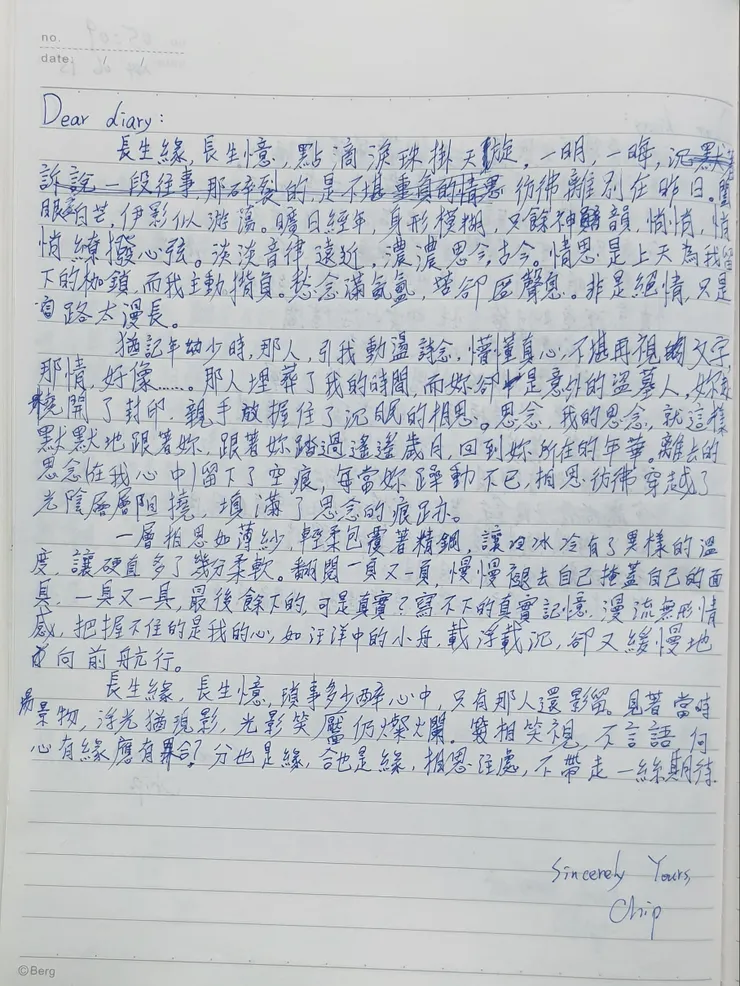 no.
date:
Dear diary:
長生緣,長生憶,點滴淚珠掛天旋,一明,一晦,沉默著
訴說一段往事,那碎裂的,是不堪重負的情思 彷彿離別在昨日。闔
眼蒼白芒,伊影似游蕩。曠日經年,身形模糊,又餘神韻,悄悄,悄
悄繚撥心弦。淡淡音律遠近,濃濃思念古今。情思是上天為我留
下的枷鎖,而我主動揹負。愁念滿氤氳,啼卻匿聲息。非是絕情,只是
路太漫長。
猶記年幼少時,那人,引我動盪詩念,懵懂真心,不堪再視的文字,
那情,好像……。那人埋葬了我的時間,而妳卻是意外的盜墓人,妳
撓開了封印,親手放握住了沉眠的相思。思念,我的思念,就這樣
默默地跟著妳,跟著妳踏過遙遙歲月,回到妳所在的年華。離去的
思念在我心中留下了空痕,每當妳躁動不已,相思彷彿穿越了
光陰層層阻撓,填滿了思念的痕跡。
一層相思如薄紗,輕柔包覆著精鋼,讓冷冰冷有了異樣的溫
度,讓硬直多了幾分柔軟。翻閱一頁又一頁,慢慢褪去自己掩蓋自己的面
具,一具又一具,最後餘下的,可是真實?寫不下的真實記憶,漫流無形情
感,把握不住的是我的心,如汪洋中的小舟,載浮載沉,卻又緩慢地
向前航行。
長生緣,長生憶,瑣事多少醉心中,只有那人還影留。見著當時
景物,浮光猶現影,光影笑靨仍燦爛。幾相笑視,不言語,何
心有緣應有合?分也是緣,合也是緣,相思注處,不帶走一絲期待
Sincerely Yours,
Chip
©Berg